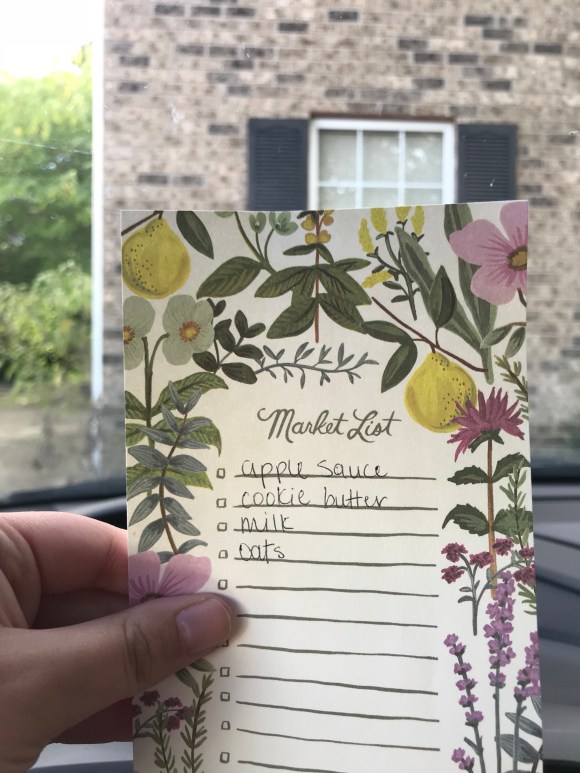 Market List
apple sauce
cookie butter
milk
oats